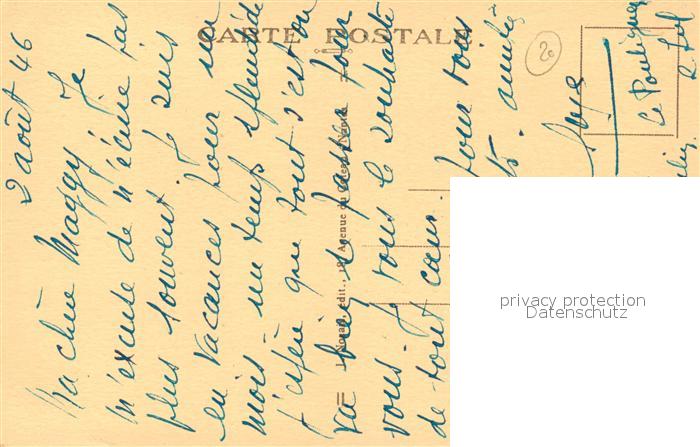 CARTE POSTALE
20
2 août 46
Ma chère Maggy Je
m'excuse de n'écrire pas
plus souvent. Je suis
en vacances pour un
mois. un temps splendide
J'espère que tout s'est ou
va bien se passer pour
vous. Je vous le souhaite
de tout cœur.
pour tous
amitiés
Le Pouliguen
J. Nozais, édit., 18, Avenue du Gigant, Nantes
privacy protection
Datenschutz